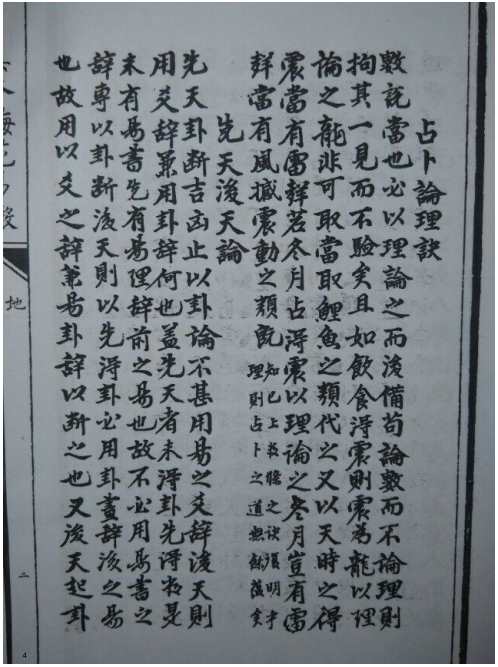 占卜論理訣
數說當也必以理論之而後備苟論數而不論理則
拘其一見而不验矣且如飲食淂震則震為龍以理
論之龍非可取當取鯉魚之類代之又以天時之得
震當有雷聲若冬月占淂震以理論之冬月豈有雷
聲當有風撼震動之類既知已上數條之訣復明乎
理則占卜之道無餘蘊矣
先天後天論
先天卦斷吉凶止以卦論不甚用易之爻辭後天則
用爻辭兼用卦辭何也蓋先天者未淂卦先淂數是
未有易書先有易理辭前之易也故不必用易書之
辭專以卦斷後天則以先淂卦必用卦畫辭後之易
也故用以爻之辭兼易卦辭以斷之也又後天起卦
地
二
4